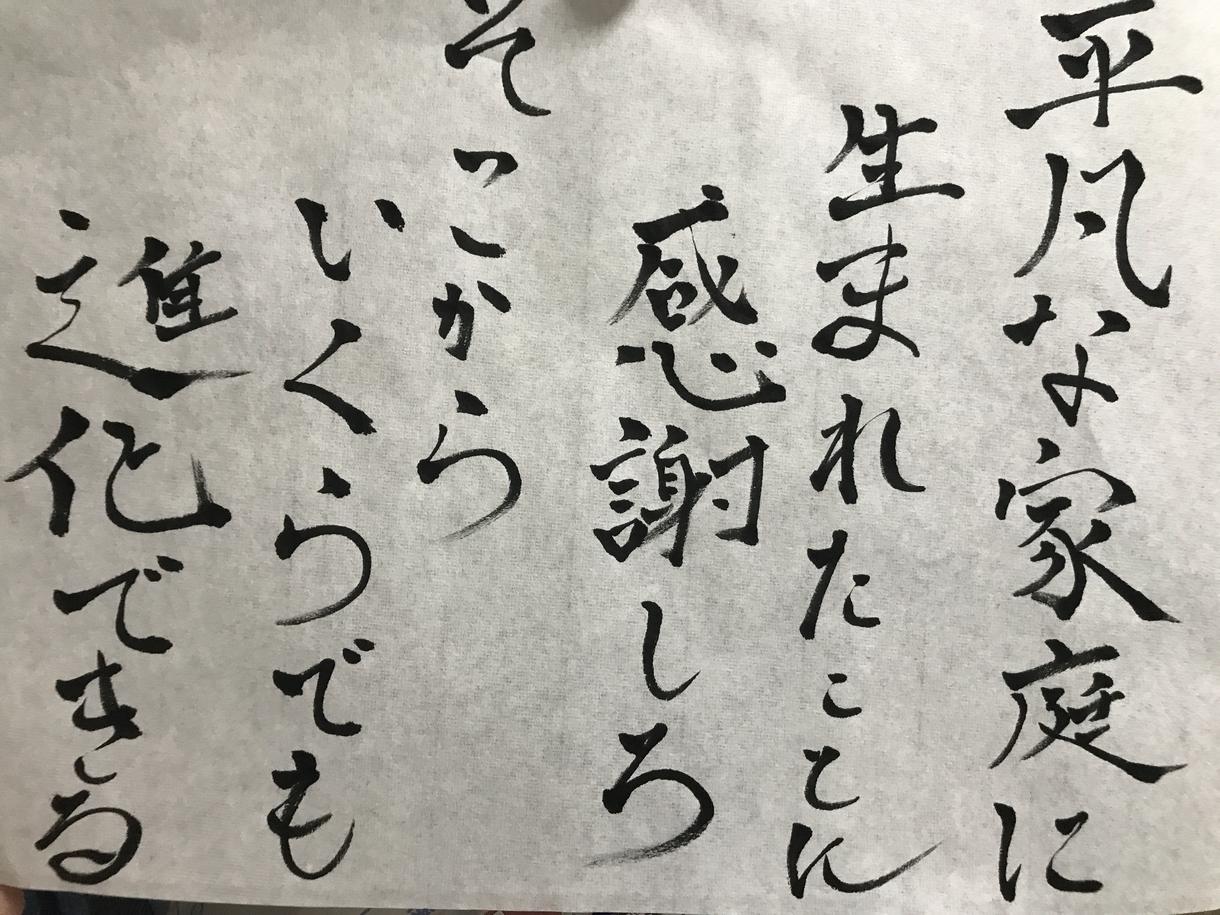 平凡な家庭に
生まれたことに
感謝しろ
そこから
いくらでも
進化できる